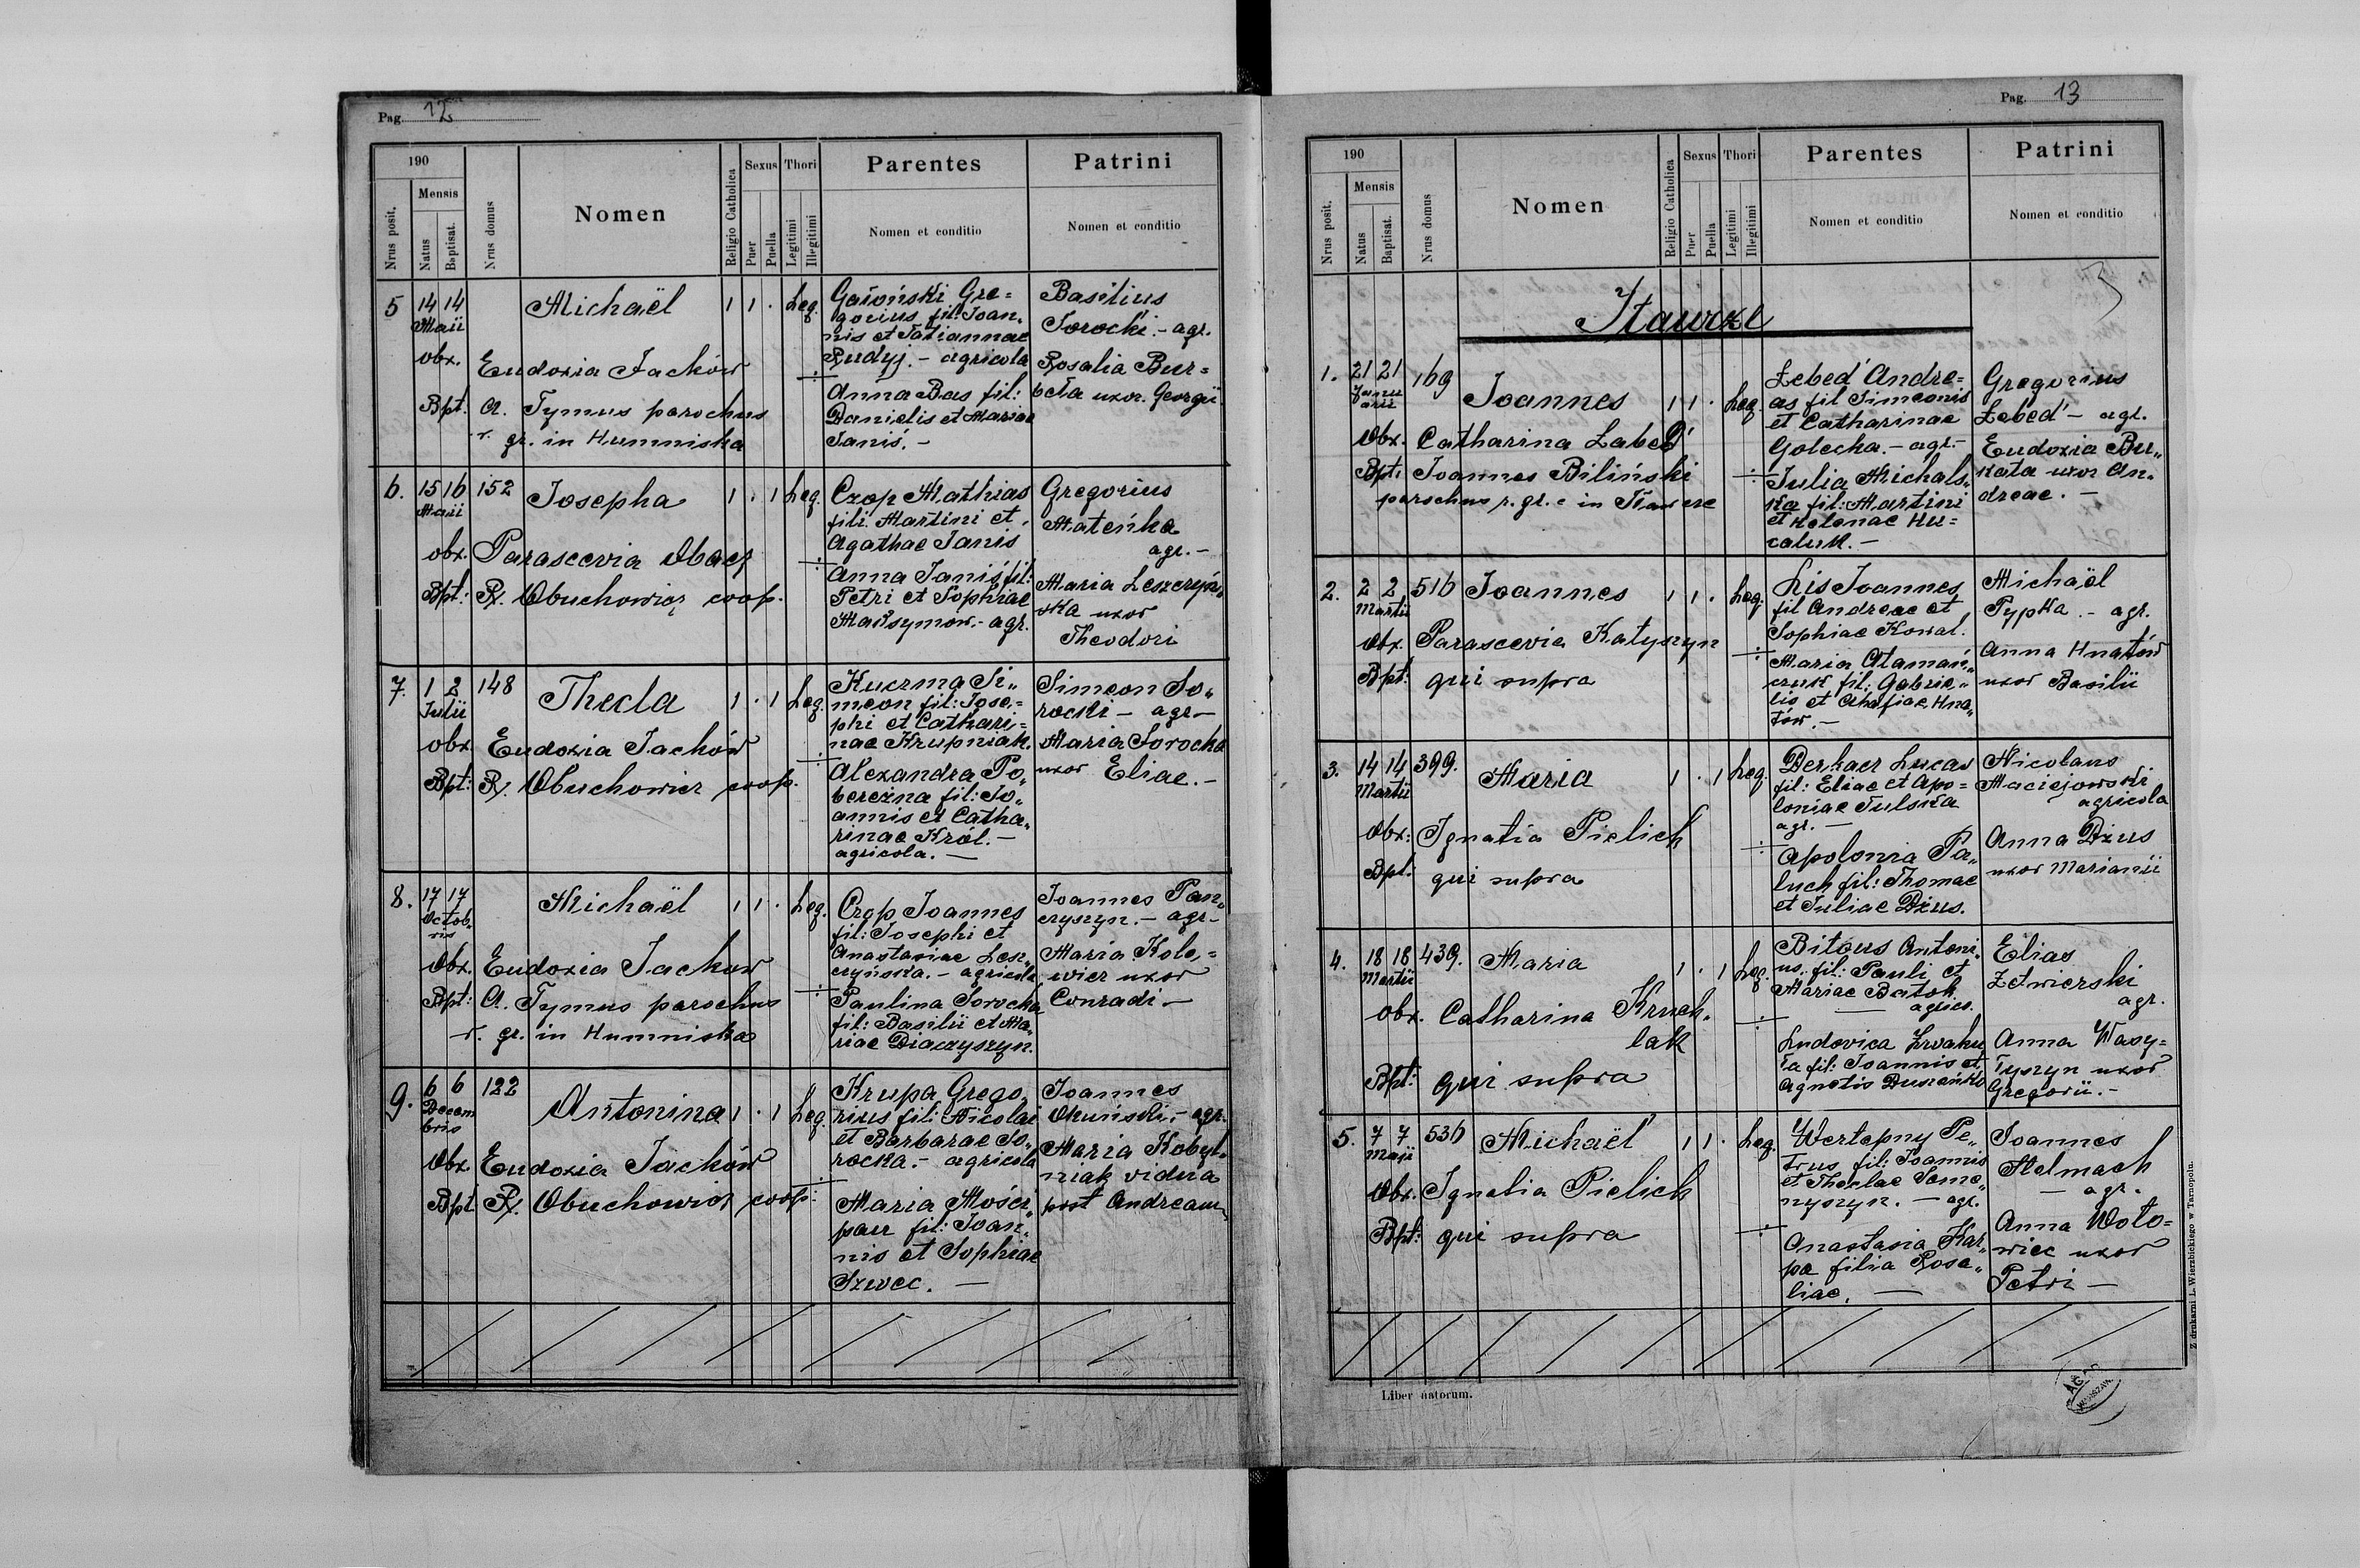 Pag. 12
190
Nrus posit.
Mensis
Natus
Baptisat.
Nrus domus
Nomen
Religio Catholica
Sexus
Puer
Puella
Thori
Legitimi
Illegitimi
Parentes
Nomen et conditio
Patrini
Nomen et conditio
5 14 14 Maii
Michaël 1 1 · Leg.
obx. Eudoxia Jachów
Bpt. A. Tymus parochus
r. gr. in Humniska
Gre=
gorius fil: Joan„
nis et Tatiannae
Rudyj. - agricola
÷
Anna Bas fil:
Danielis et Mariae
Janiś. -
Basilius
Sorocki. - agr.
Rosalia Bur=
uxor. Georgii
6. 15 16 Maii 152
Josepha 1 · 1 Leg.
obx. Parascevia
Bpt: R. Obuchowicz coop.
Czop Mathias
fil: Martini et
Agathae Janis
÷
Anna Janiś fil:
Petri et Sophiae
Maksymow. - agr.
Gregorius
agr. -
Maria Leszczyń„
ska uxor
Theodori
7. 1 2 Julii 148
Thecla 1 · 1 Leg.
obx Eudoxia Jachów
Bpt: R. Obuchowicz coop.
Kuczma Si„
meon fil: Jose=
phi et Cathari=
nae Krupniak.
÷
Alexandra Po„
bereżna fil: Jo„
annis et Catha„
rinae Król. -
agricola. -
Simeon So„
rocki - agr -
Maria Sorocka
uxor Eliae. -
8. 17 17 Octob„
ris
Michaël 1 1 · Leg.
Obx. Eudoxia Jachow
Bpt: A. Tymus parochus
r. gr. in Humniska
Czop Joannes
fil: Josephi et
Anastasiae Lesz„
czyńska. - agricola
÷
Paulina Sorocka
fil: Basilii et Ma„
riae Diaczyszyn.
Joannes Pan„
czyszyn. - agr -
Maria Kole=
wicz uxor
Conradi -
9. 6 6 Decem
bris 122
Antonina 1 · 1 Leg.
Obx Eudoxia Jachów
Bpt R. Obuchowicz coop:
Krupa Grego„
rius fil: Nicolai
et Barbarae So„
rocka. - agricola
÷
Maria Mości„
pan fil: Joan„
nis et Sophiae
Szwec. -
Joannes
- agr.
Maria Kobyl„
niak vidua
post Andream
Pag. 13
190
Nrus posit.
Mensis
Natus
Baptisat.
Nrus domus
Nomen
Religio Catholica
Sexus
Puer
Puella
Thori
Legitimi
Illegitimi
Parentes
Nomen et conditio
Patrini
Nomen et conditio
1. 21 21 Janu
arii 169
Joannes 1 1 · Leg.
Obx. Catharina Łabed'
Bpt: Joannes Biliński
parochus r. gr. c in
Łebed' Andre=
as fil Simeonis
et Catharinae
Golecka. - agr. -
÷
Julia Michals„
ka fil: Martini
et Helenae Hu=
caluk. -
Gregorius
Łebed' - agr.
Eudoxia Bu„
kata uxor An„
dreae. -
2. 2 2 Martii 516
Joannes 1 1 · Leg.
Obx. Parascevia Katyszyn
Bpt: qui supra
Lis Joannes
fil Andreae et
Sophiae Kowal.
÷
Maria Atamań„
czuk fil: Gabrie„
lis et Ahafiae Hna„
tów. -
Michaël
Pypka. - agr.
Anna Hnatów
uxor Basilii
3. 14 14 Martii 399.
Maria 1 · 1 Leg.
Obx: Ignatia Pielich
Bpt. qui supra
Derkacz Lucas
fil: Eliae et Apo=
loniae Tulska
agr. -
÷
Apolonia Pa„
luch fil: Thomae
et Juliae Dżus.
Nicolaus
Maciejowski
agricola
Anna Dżus
uxor Marianii
4. 18 18 Martii 439.
Maria 1 · 1 Leg.
Obx. Catharina Kruch„
lak
Bpt: qui supra
Bitous Antoni„
us. fil: Pauli et
Mariae Batok
- agric.
÷
Ludovica
ta fil: Joannis et
Agnetis
Elias
agr.
Anna Wasy=
łyszyn uxor
Gregorii. -
5. 7 7 Maji 536
Michaël 1 1 · Leg.
Obx. Ignatia Pielich
Bpt: qui supra
Wertepny Pe„
trus fil: Joannis
et Theclae Seme„
nyszyn. - agr.
÷
Anastasia Kar„
pa filia Rosa„
liae. -
Joannes
Stelmach
- agr.
Anna Woło=
wiec uxor
Petri -
Liber natorum.
Z drukarni L. Wierzbickiego w Tarnopolu.